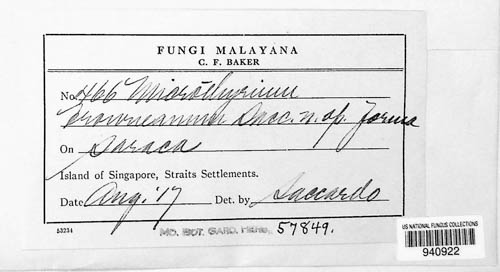 FUNGI MALAYANA
C. F. BAKER
No. 466 Microthyrium
Browneanum Sacc. n. sp. forma
On Saraca
Island of Singapore, Straits Settlements.
Date Aug. '17 Det. by Saccardo
53234
MO. BOT. GARD. HERB. 57849.
US NATIONAL FUNGUS COLLECTIONS
940922